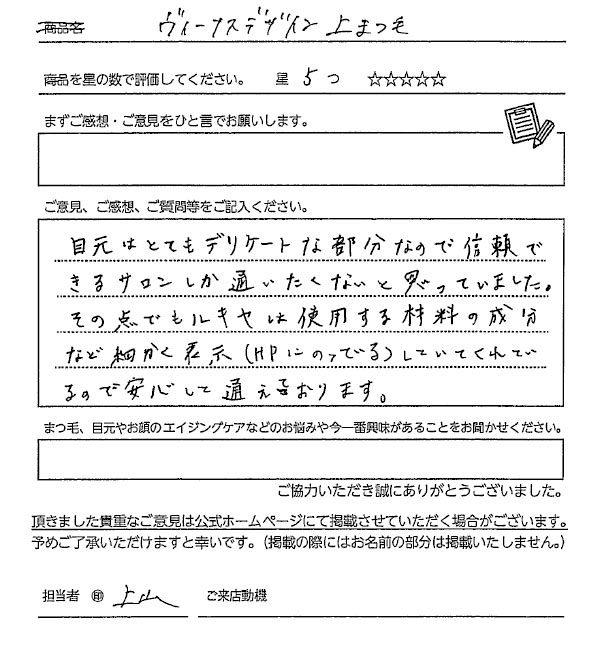 商品名 ヴィーナスデザイン上まつ毛
商品を星の数で評価してください。 星 5つ ☆☆☆☆☆
まずご感想・ご意見をひと言でお願いします。
ご意見、ご感想、ご質問等をご記入ください。
目元はとてもデリケートな部分なので信頼で
きるサロンしか通いたくないと思っていました。
その点でもルキヤは使用する材料の成分
など細かく表示(HPにのってる)していてくれてい
るので安心して通えております。
まつ毛、目元やお顔のエイジングケアなどのお悩みや今一番興味があることをお聞かせください。
ご協力いただき誠にありがとうございました。
頂きました貴重なご意見は公式ホームページにて掲載させていただく場合がございます。
予めご了承いただけますと幸いです。(掲載の際にはお名前の部分は掲載いたしません。)
担当者 ㊞ 上山 ご来店動機